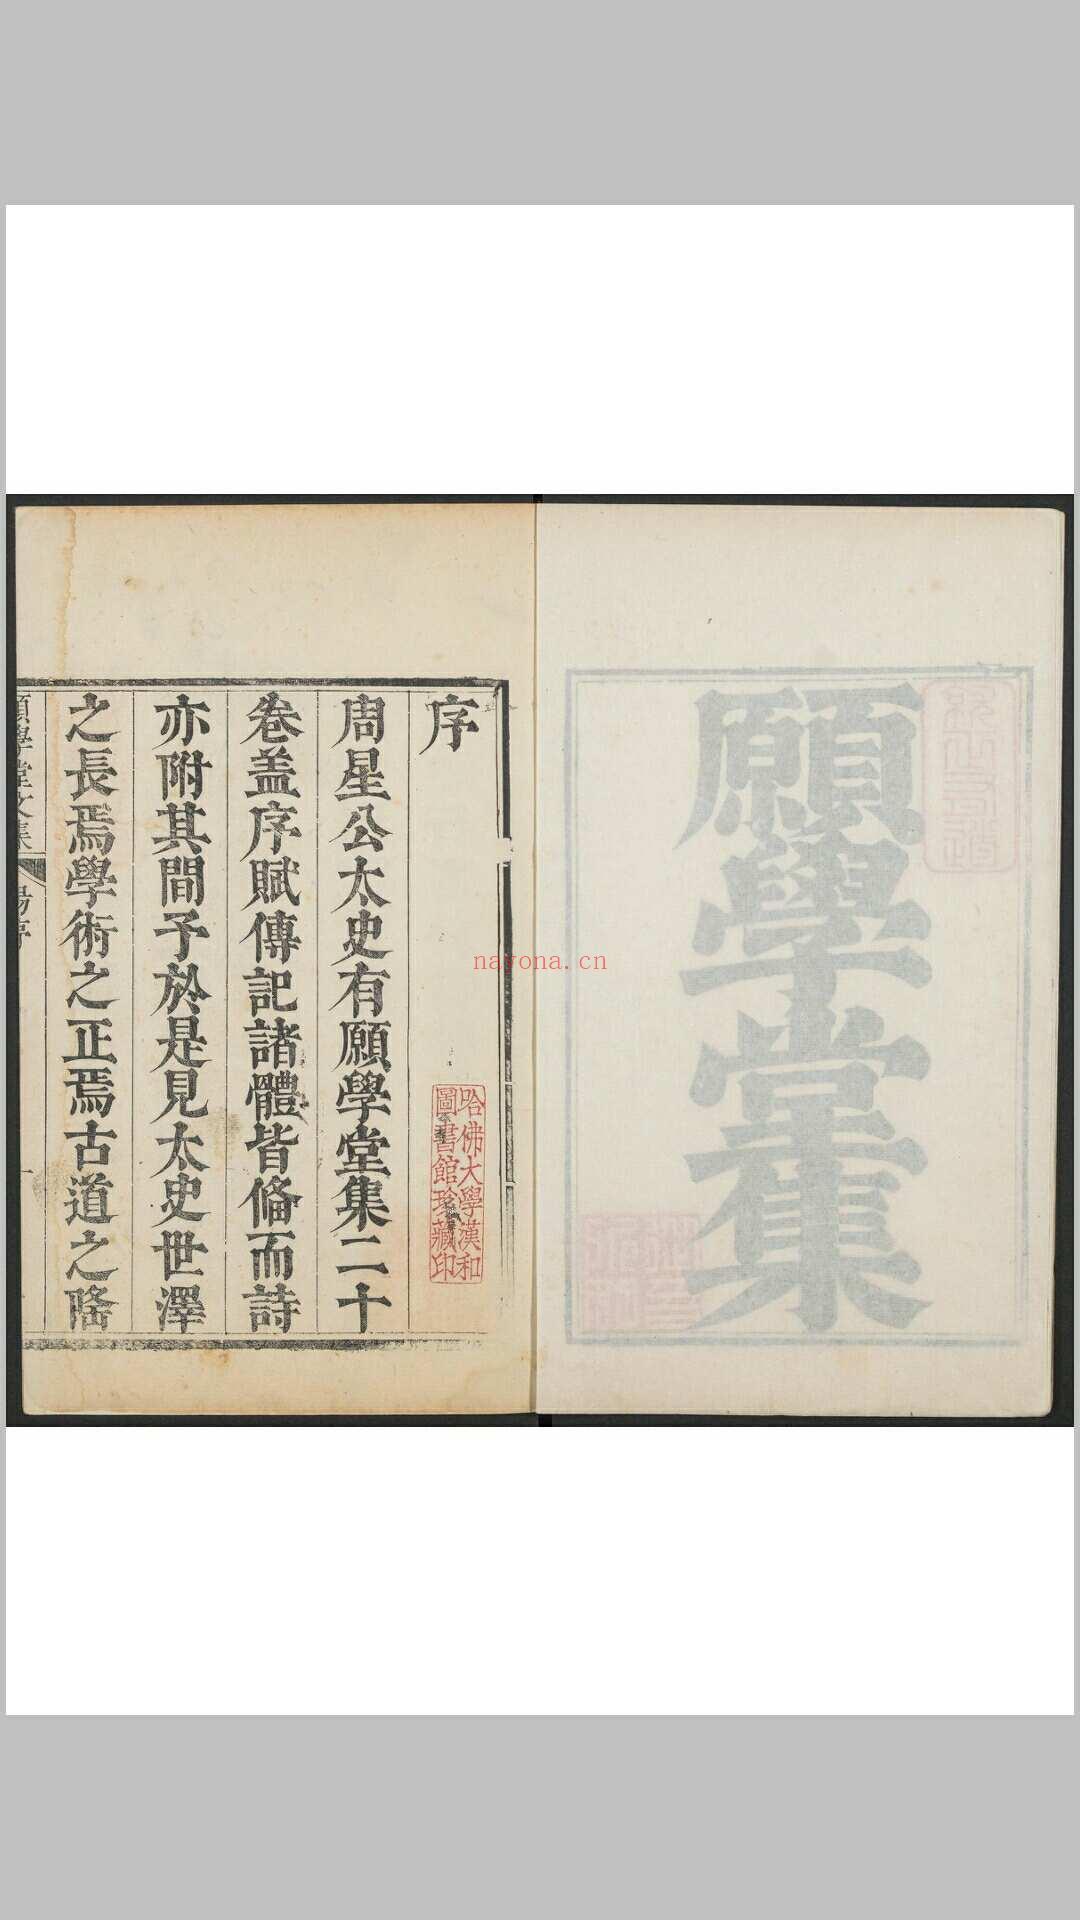 願學堂集
序
周星公太史有願學堂集二十
卷盖序賦傳記諸體皆俻而詩
亦附其間予於是見太史世澤
之長焉學術之正焉古道之隆
願學堂文集
哈佛大學漢和
圖書館珍藏印
nayona.cn